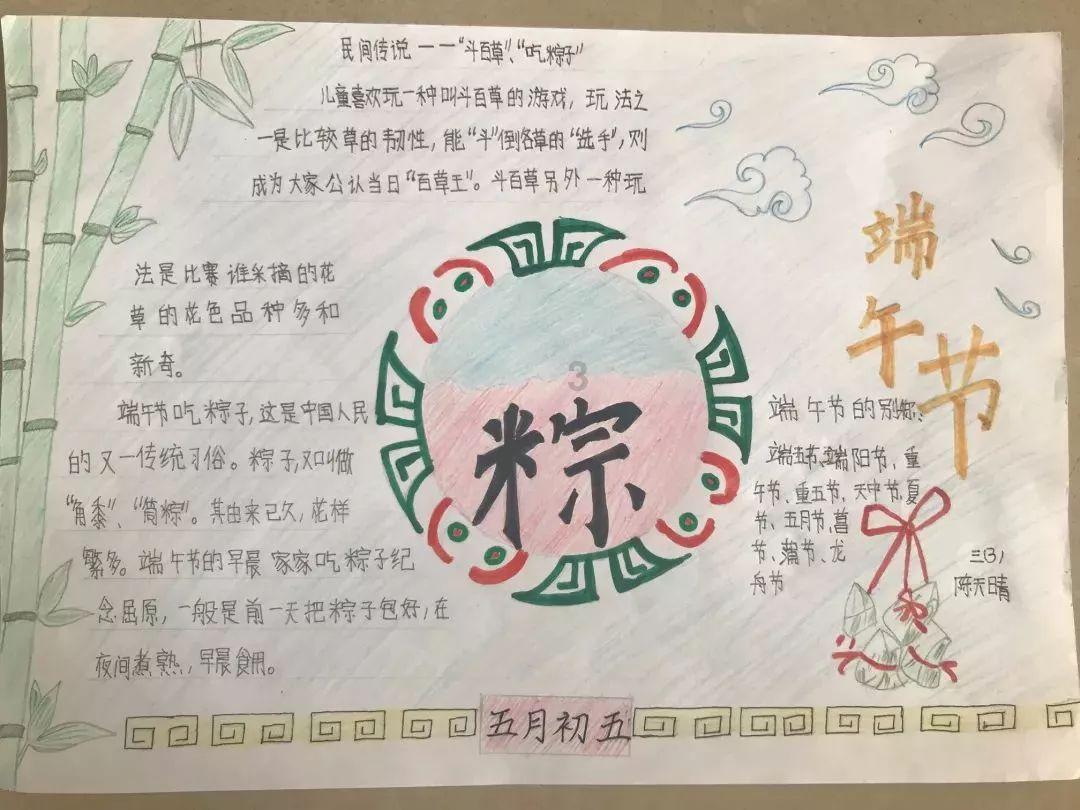 民间传说——“斗百草”、“吃粽子”
儿童喜欢玩一种叫斗百草的游戏，玩法之
一是比较草的韧性，能“斗”倒各草的“选手”，则
成为大家公认当日“百草王”。斗百草另外一种玩
法是比赛谁采摘的花
草的花色品种多和
新奇。
端午节吃粽子，这是中国人民
的又一传统习俗。粽子，又叫做
“角黍”、“筒粽”。其由来已久，花样
繁多。端午节的早晨家家吃粽子纪
念屈原，一般是前一天把粽子包好，在
夜间煮熟，早晨食用。
3
粽
端
午
节
端午节的别称：
端五节、端阳节、重
午节、重五节、天中节、夏
节、五月节、菖
节、蒲节、龙
舟节
三(3)
陈天晴
五月初五